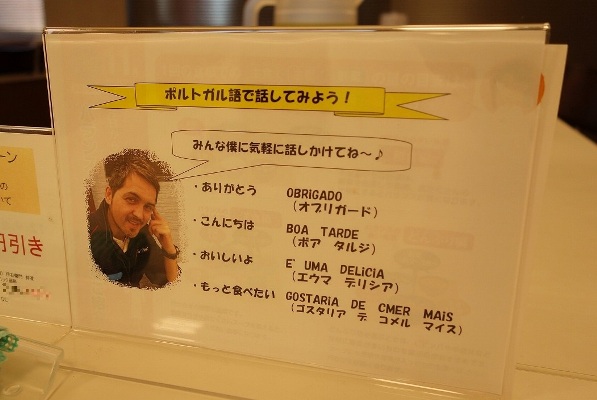 ポルトガル語で話してみよう！
みんな僕に気軽に話しかけてね～♪
・ありがとう OBRIGADO
（オブリガード）
・こんにちは BOA TARDE
（ボア タルジ）
・おいしいよ E' UMA DELiCIA
（エウマ デリシア）
・もっと食べたい GOSTARiA DE CMER MAiS
（ゴスタリア デ コメル マイス）
ーン
の
いて
円引き